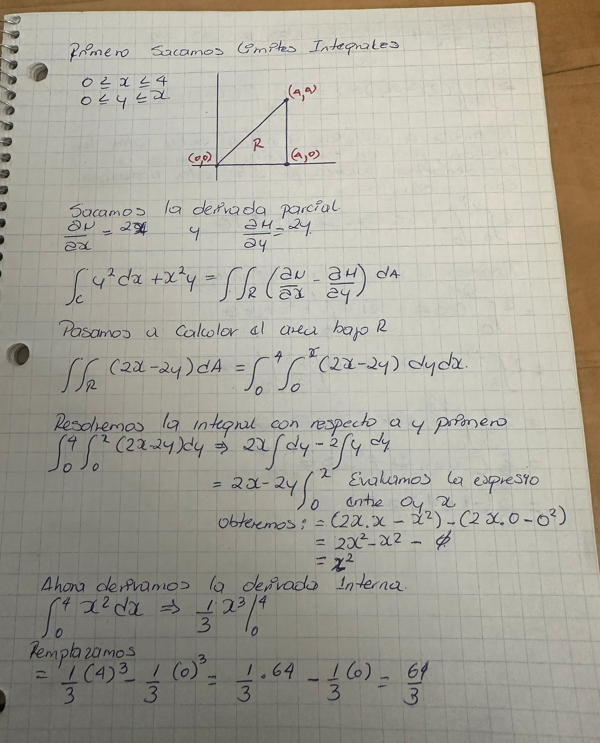 Primero Sacamos Limites Integrales
0 ≤ x ≤ 4
0 ≤ y ≤ x
(4,4)
R
(0,0)
(4,0)
Sacamos la derivada parcial
∂N/∂x = 2x y ∂M/∂y = 2y
∫_C y²dx + x²y = ∫∫_R (∂N/∂x - ∂M/∂y) dA
Pasamos a Calcolor el area bajo R
∫∫_R (2x-2y) dA = ∫_0^4 ∫_0^x (2x-2y) dydx.
Resolvemos la integral con respecto a y primero
∫_0^4 ∫_0^x (2x-2y)dy ⇒ 2x∫dy - 2∫y dy
= 2x-2y ∫_0^x Evaluamos la expresio
entre 0 y x
Obteremos: = (2x.x - x²) - (2x.0 - 0²)
= 2x² - x² - 0
= x²
Ahora derivamos la derivada Interna.
∫_0^4 x²dx ⇒ 1/3 x³/_0^4
Remplazamos
= 1/3 (4)³ - 1/3 (0)³ = 1/3 . 64 - 1/3 (0) = 64/3